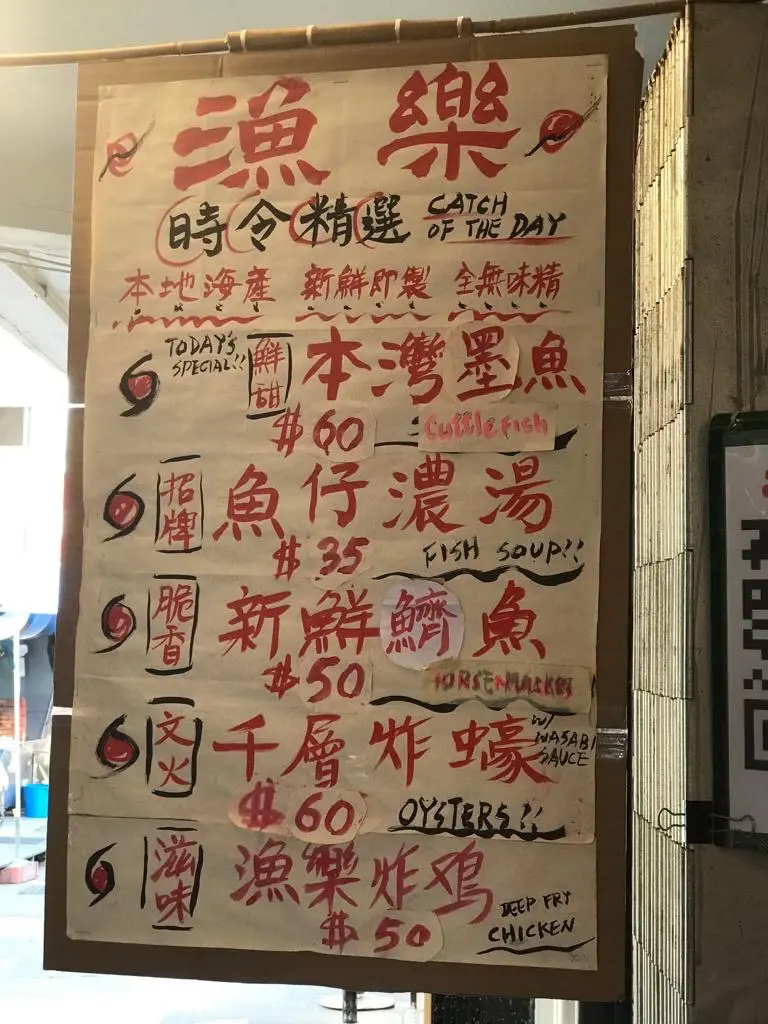 漁樂
時令精選 CATCH OF THE DAY
本地海產 新鮮即製 全無味精
TODAY'S SPECIAL!! 鮮甜 本灣墨魚
$60 Cuttlefish
招牌 魚仔濃湯
$35 FISH SOUP!!
脆香 新鮮鱭魚
$50
文火 千層炸蠔 W/ WASABI SAUCE
$60 OYSTERS!!
滋味 漁樂炸鸡
$50 DEEP FRY CHICKEN